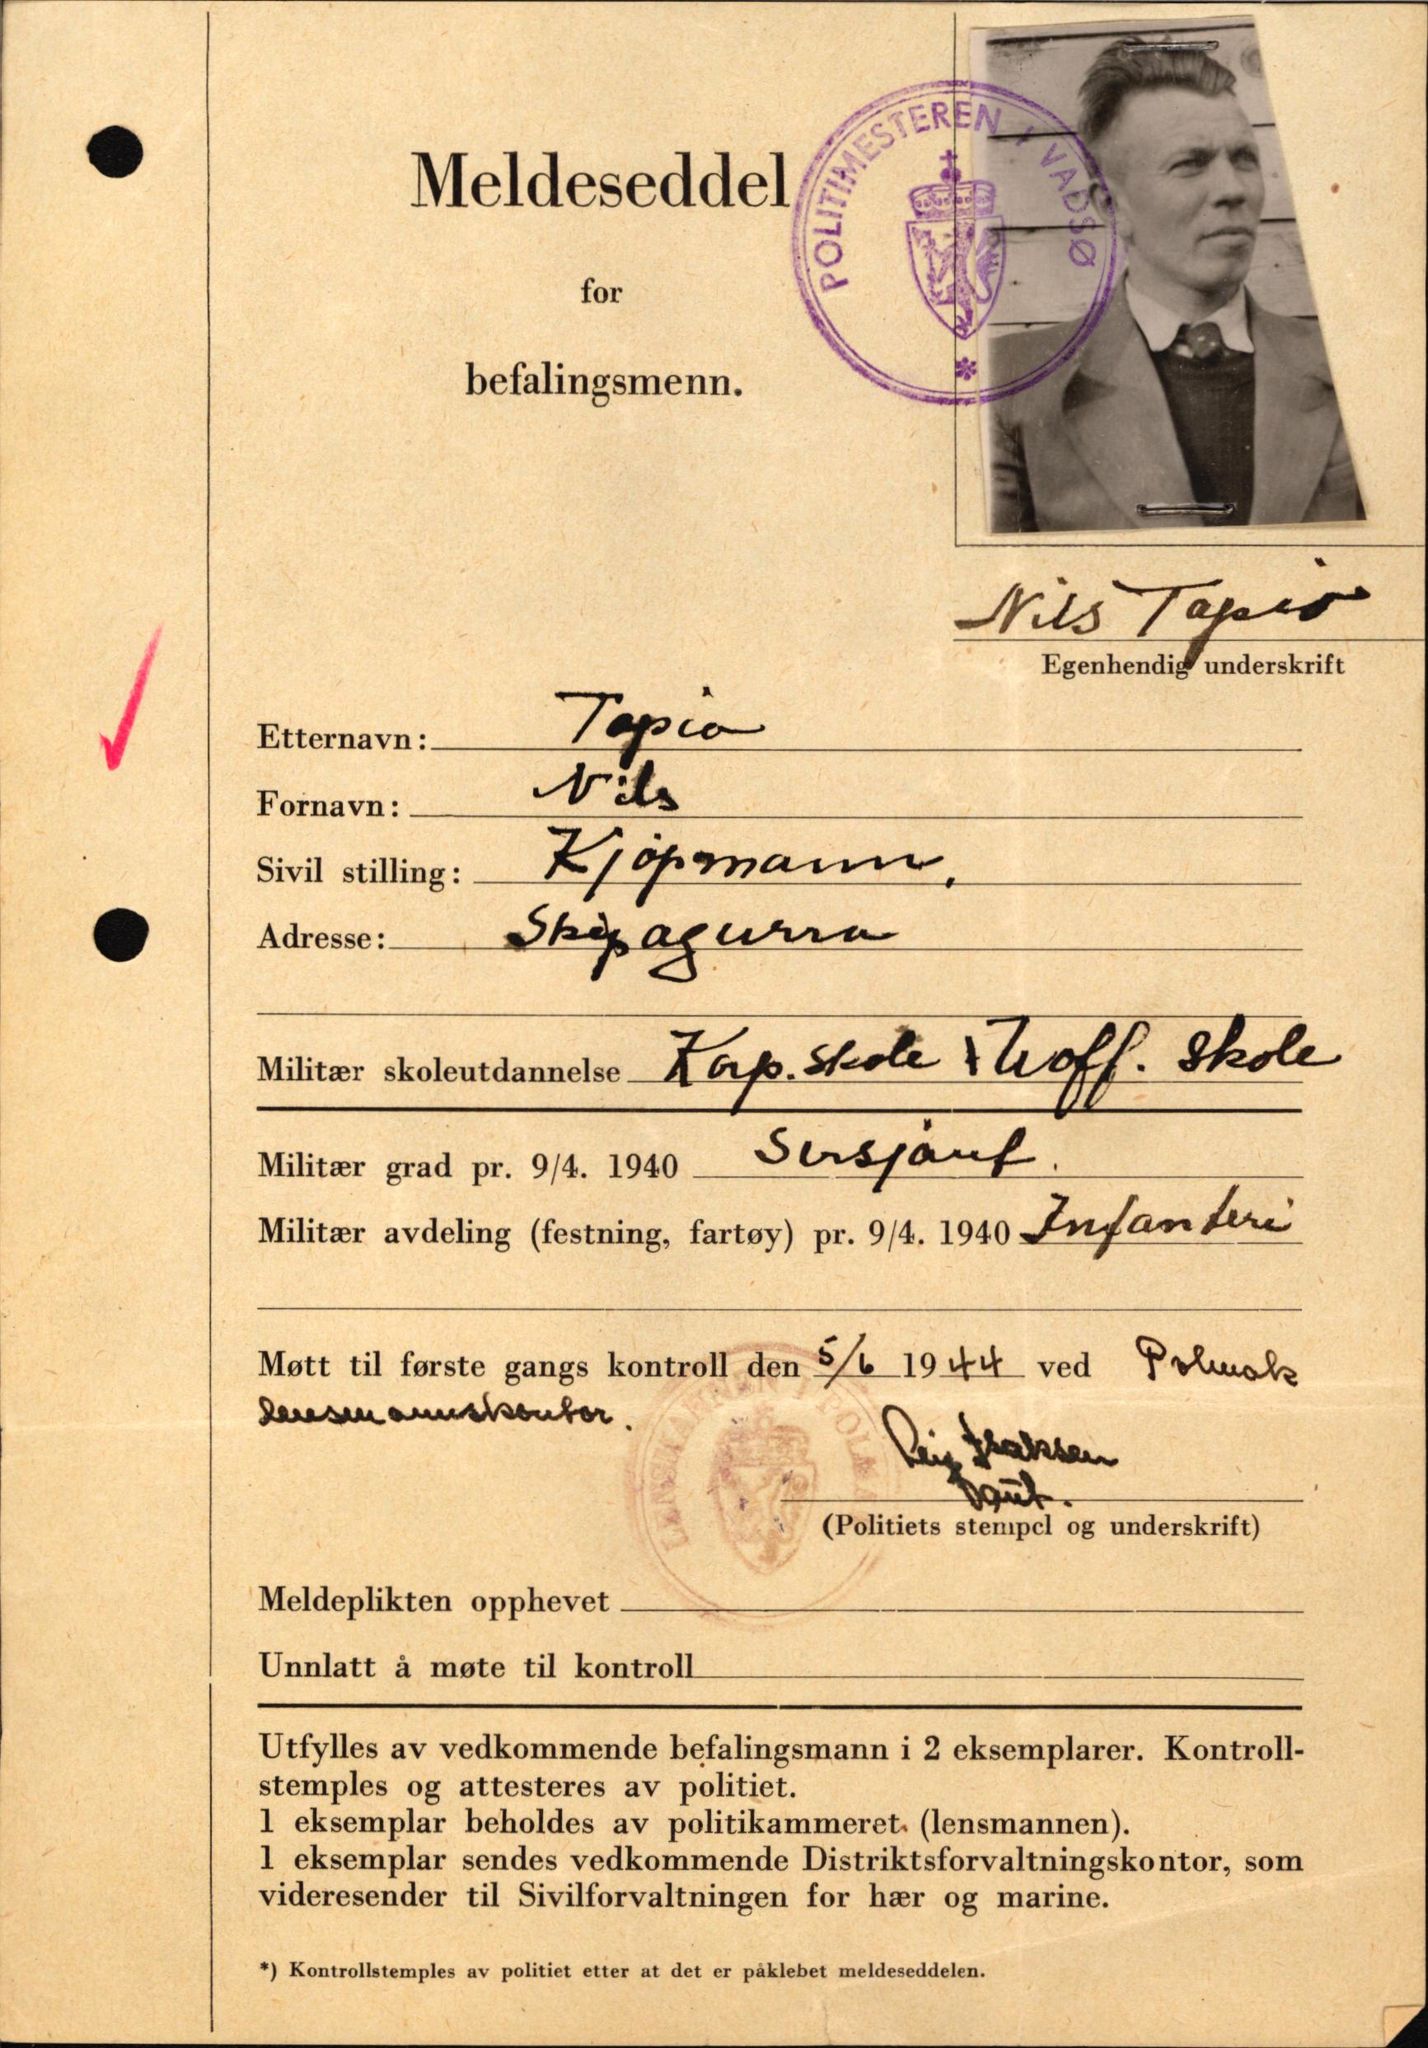 Meldeseddel
for
befalingsmenn.
POLITIMESTEREN I VADSØ *
Nils Tapio
Egenhendig underskrift
Etternavn: Tapio
Fornavn: Nils
Sivil stilling: Kjøpmann.
Adresse: Skipagurra
Militær skoleutdannelse Korp. skole + Uoff. skole
Militær grad pr. 9/4. 1940 Sersjant.
Militær avdeling (festning, fartøy) pr. 9/4. 1940 Infanteri
Møtt til første gangs kontroll den 5/6 1944 ved Polmak
lensmannskontor.
Isaksen
(Politiets stempel og underskrift)
LENSMANNEN I POLMAK
Meldeplikten opphevet
Unnlatt å møte til kontroll
Utfylles av vedkommende befalingsmann i 2 eksemplarer. Kontroll-
stemples og attesteres av politiet.
1 eksemplar beholdes av politikammeret (lensmannen).
1 eksemplar sendes vedkommende Distriktsforvaltningskontor, som
videresender til Sivilforvaltningen for hær og marine.
*) Kontrollstemples av politiet etter at det er påklebet meldeseddelen.